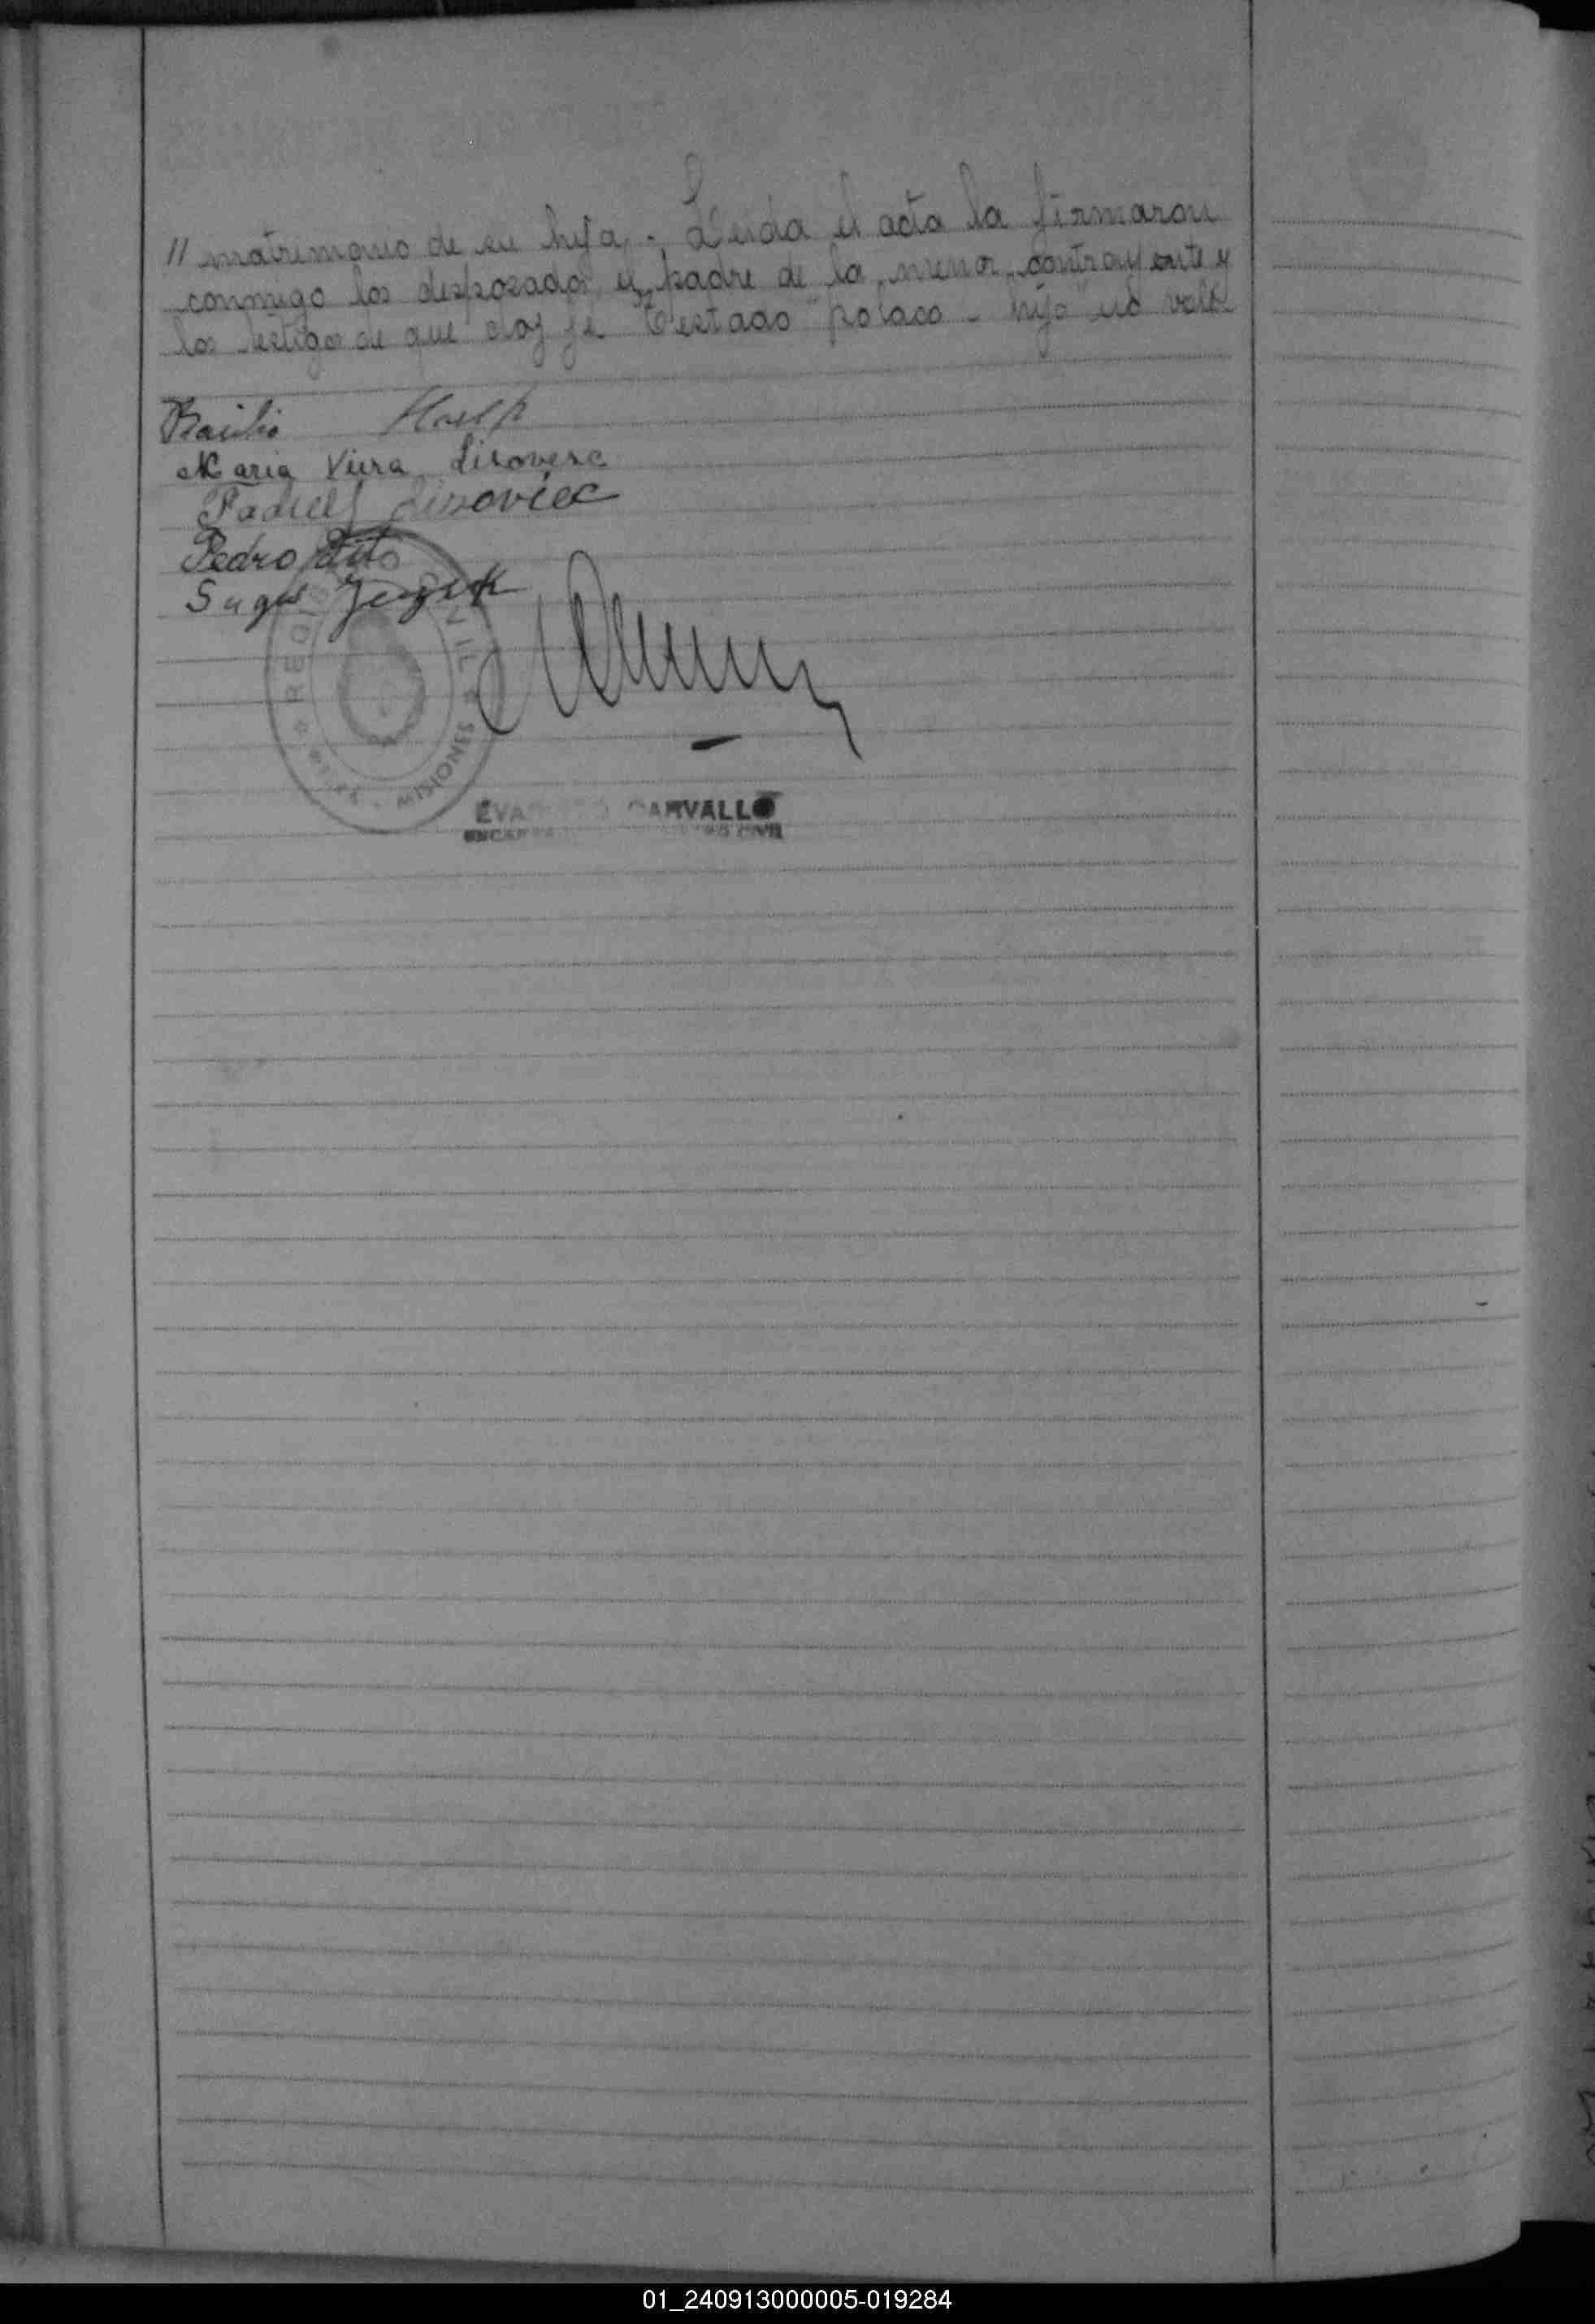 // matrimonio de su hija.- Leida el acta la firmaron
conmigo los desposados, el padre de la menor contrayente y
los testigos de que doy fe Testado "polaco - hijo" no vale
Basilio
Maria Viera Lisoviesc
Lisoviec
Pedro
REGISTRO CIVIL
MISIONES
CARVALLO
CIVIL
01_240913000005-019284